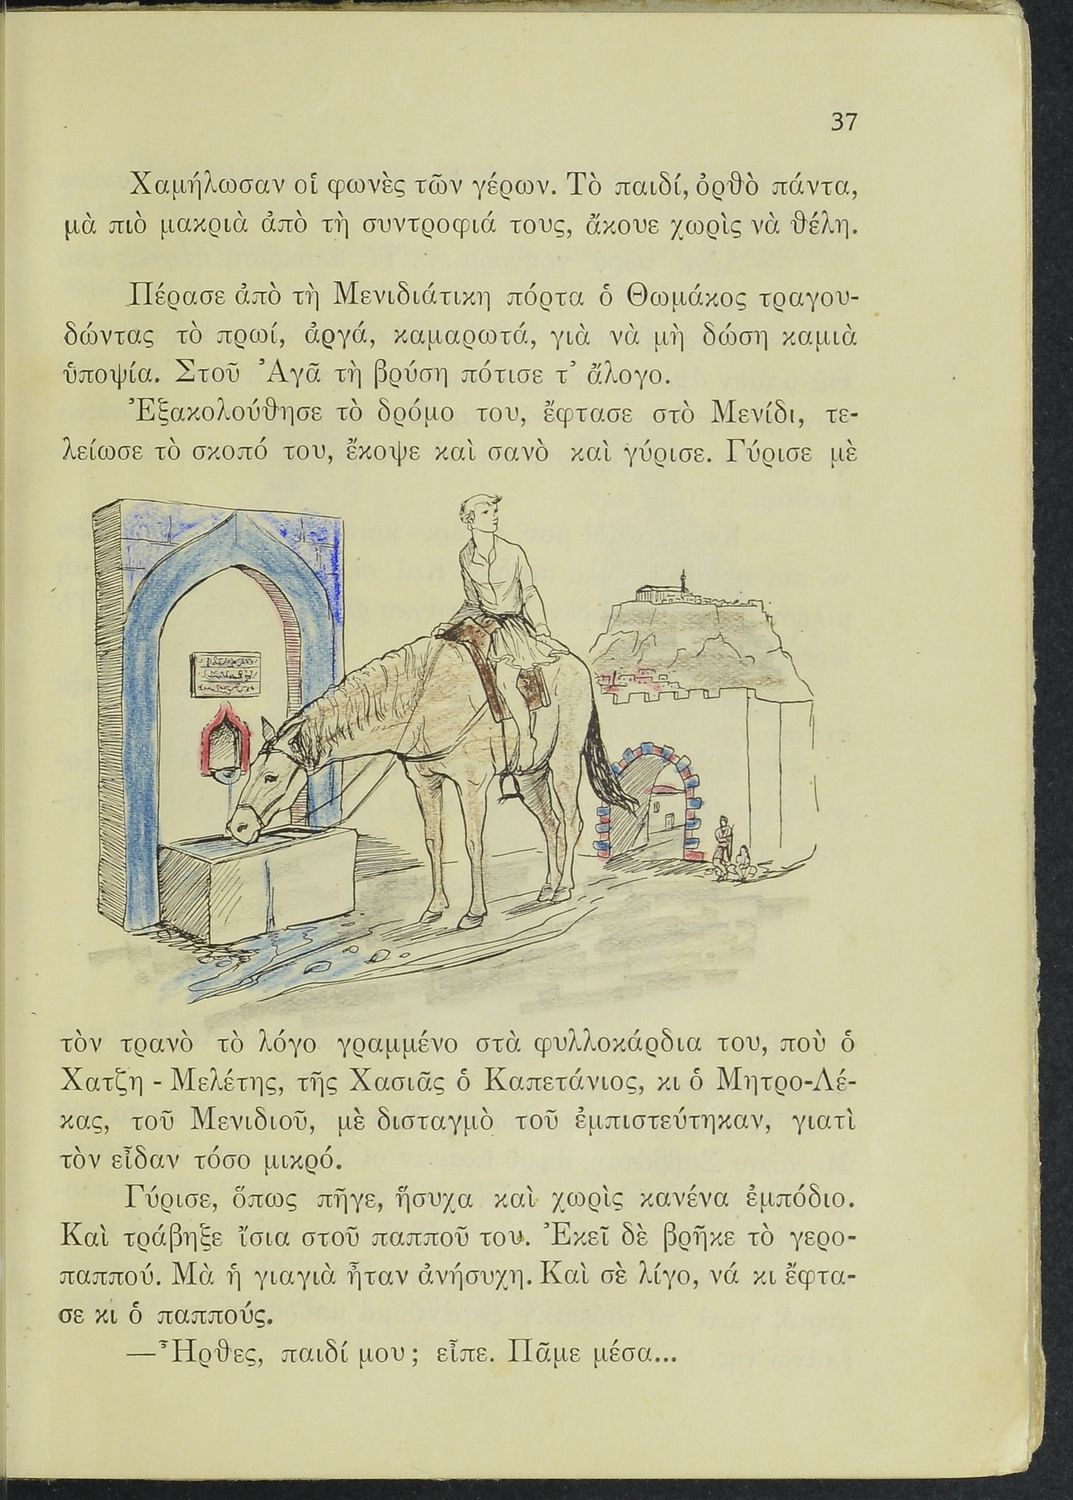 37
Χαμήλωσαν οἱ φωνὲς τῶν γέρων. Τὸ παιδί, ὀρθὸ πάντα,
μὰ πιὸ μακριὰ ἀπὸ τὴ συντροφιά τους, ἄκουε χωρὶς νὰ θέλη.
Πέρασε ἀπὸ τὴ Μενιδιάτικη πόρτα ὁ Θωμάκος τραγου-
δώντας τὸ πρωί, ἀργά, καμαρωτά, γιὰ νὰ μὴ δώση καμιὰ
ὑποψία. Στοῦ Ἀγᾶ τὴ βρύση πότισε τ' ἄλογο.
Ἐξακολούθησε τὸ δρόμο του, ἔφτασε στὸ Μενίδι, τε-
λείωσε τὸ σκοπό του, ἔκοψε καὶ σανὸ καὶ γύρισε. Γύρισε μὲ
τὸν τρανὸ τὸ λόγο γραμμένο στὰ φυλλοκάρδια του, ποὺ ὁ
Χατζη - Μελέτης, τῆς Χασιᾶς ὁ Καπετάνιος, κι ὁ Μητρο-Λέ-
κας, τοῦ Μενιδιοῦ, μὲ δισταγμὸ τοῦ ἐμπιστεύτηκαν, γιατὶ
τὸν εἶδαν τόσο μικρό.
Γύρισε, ὅπως πῆγε, ἥσυχα καὶ χωρὶς κανένα ἐμπόδιο.
Καὶ τράβηξε ἴσια στοῦ παπποῦ του. Ἐκεῖ δὲ βρῆκε τὸ γερο-
παππού. Μὰ ἡ γιαγιὰ ἦταν ἀνήσυχη. Καὶ σὲ λίγο, νά κι ἔφτα-
σε κι ὁ παππούς.
—Ἦρθες, παιδί μου; εἶπε. Πᾶμε μέσα...